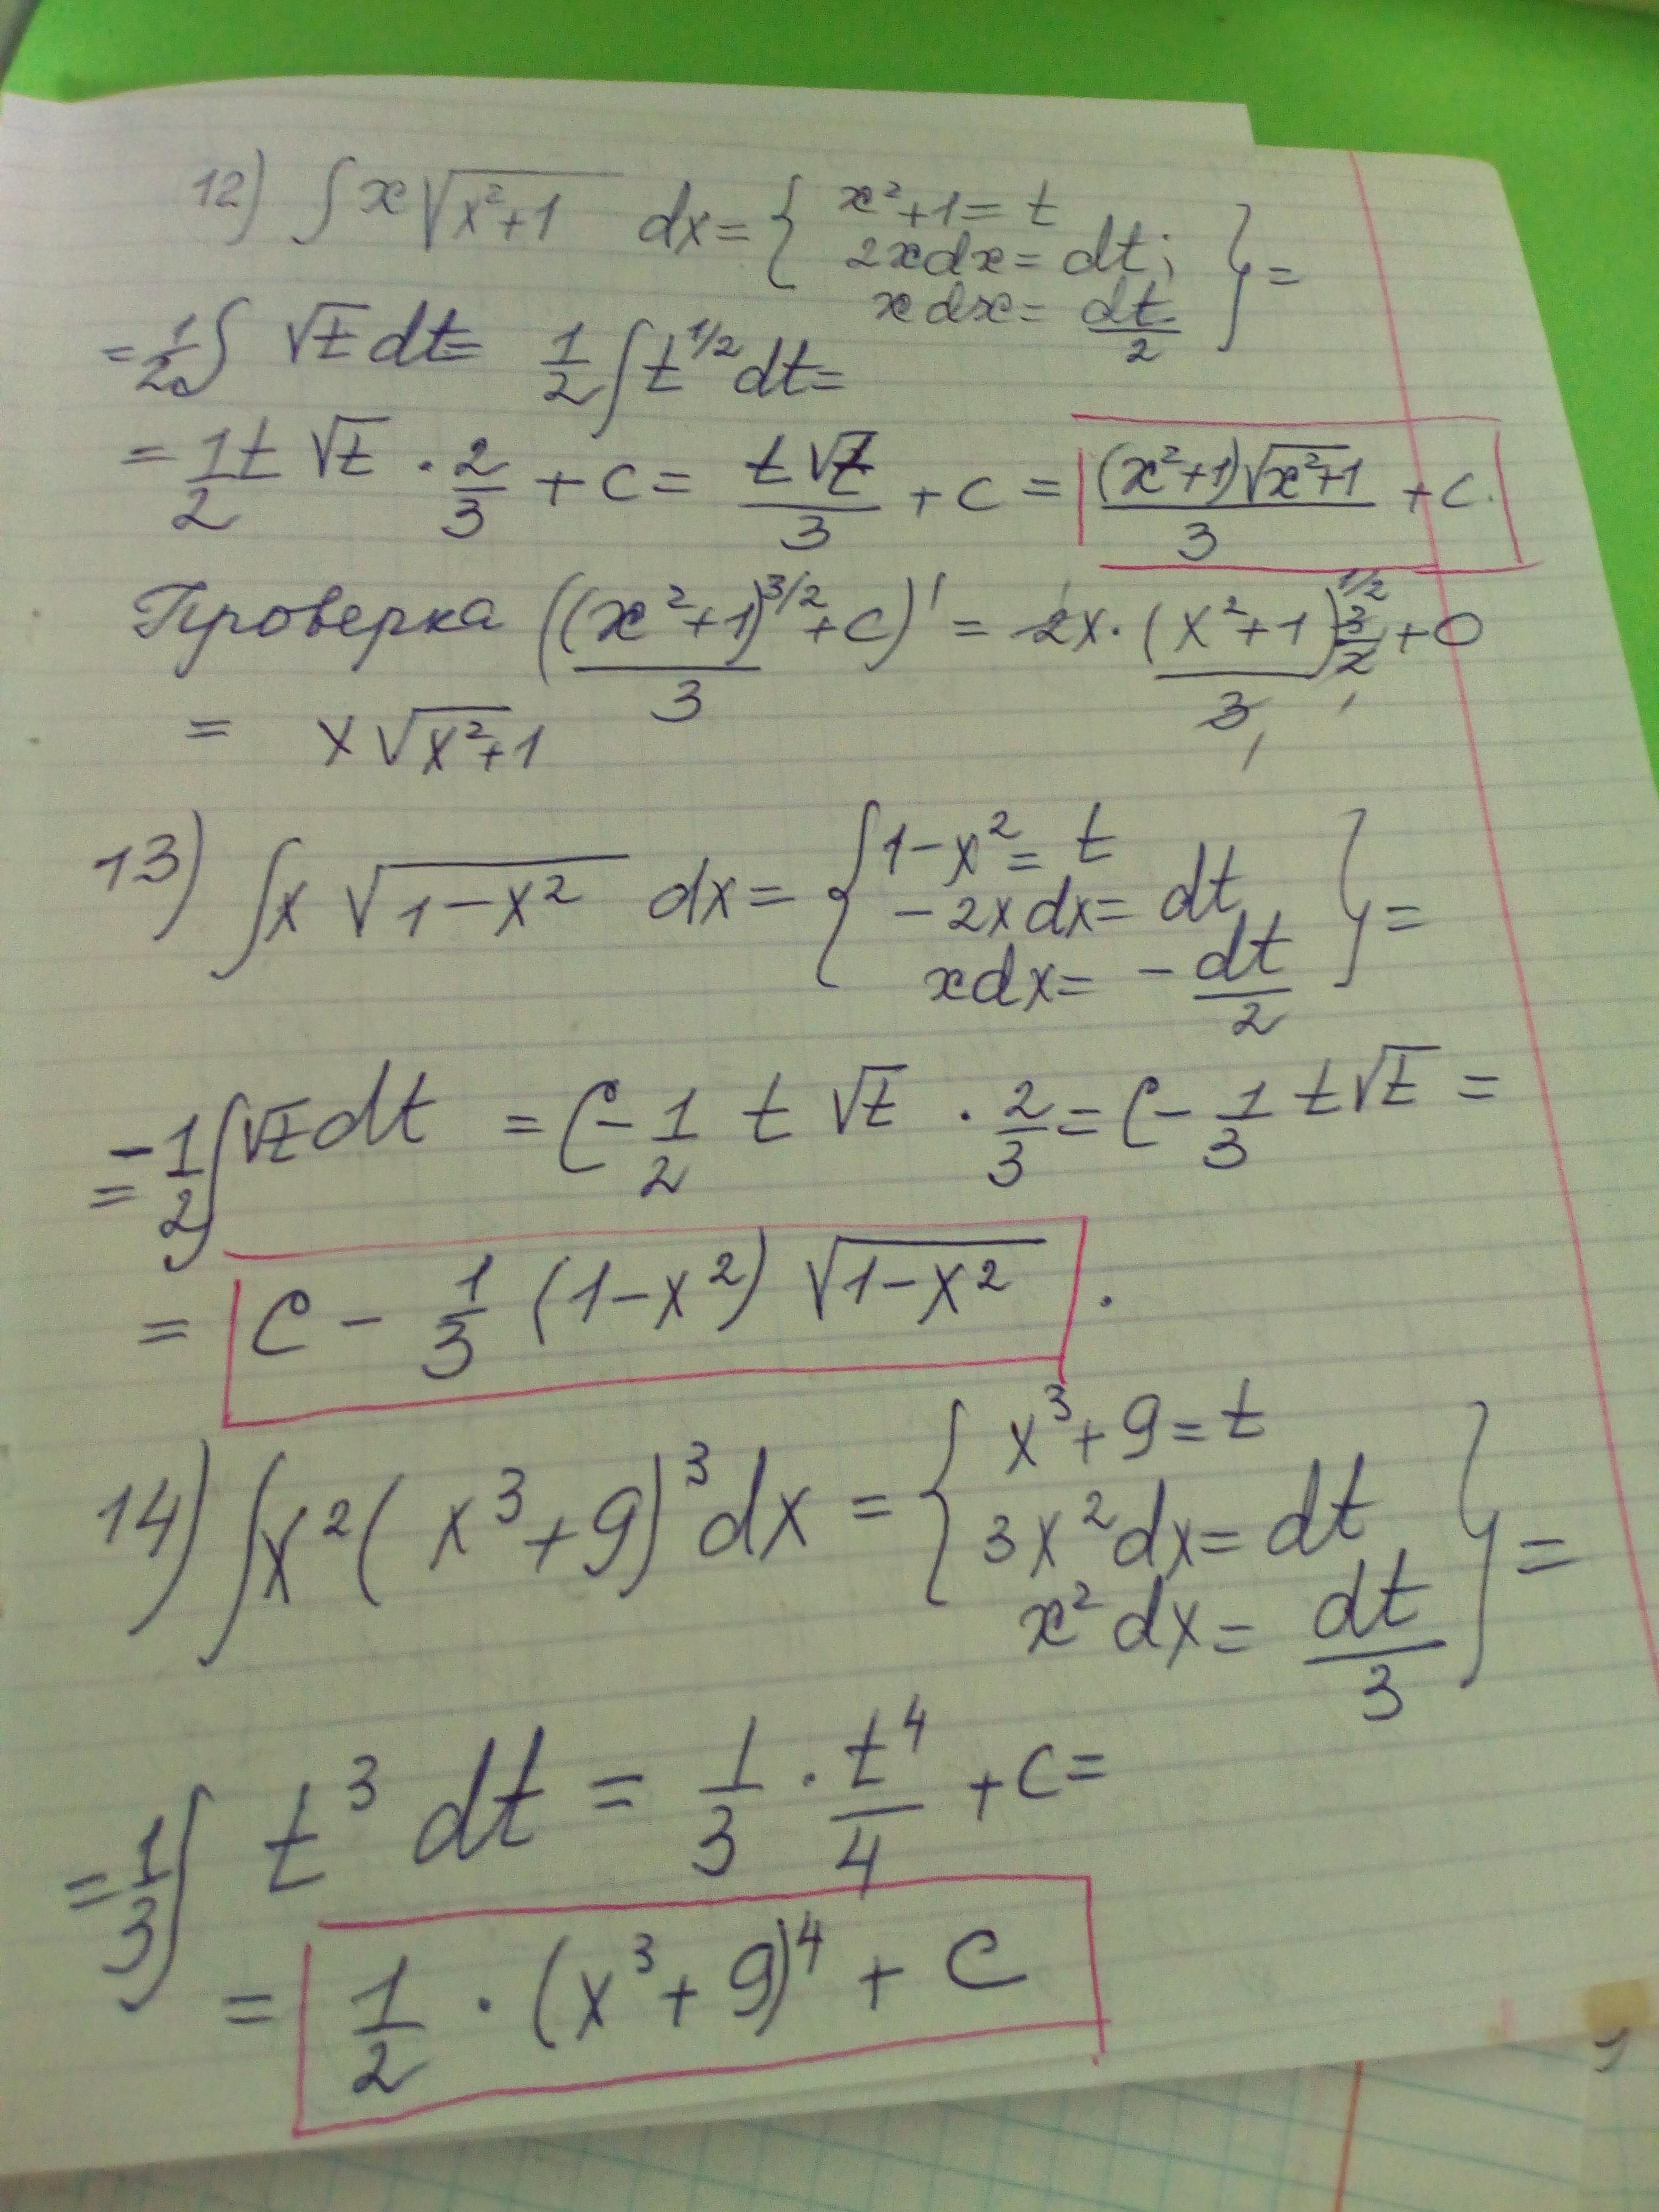 12) ∫ x √(x²+1) dx = { x²+1 = t
2xdx = dt;
xdx = dt/2 } =
= 1/2 ∫ √t dt = 1/2 ∫ t^(1/2) dt =
= 1/2 t √t · 2/3 + C = t√t/3 + C = (x²+1)√(x²+1)/3 + C.
Проверка ((x²+1)^(3/2)/3 + C)' = 2x · (x²+1)^(1/2)/3 · 3/2 + 0
= x √(x²+1)
13) ∫ x √(1-x²) dx = { 1-x² = t
-2xdx = dt
xdx = - dt/2 } =
= -1/2 ∫ √t dt = C - 1/2 t √t · 2/3 = C - 1/3 t √t =
= C - 1/3 (1-x²) √(1-x²) .
14) ∫ x² (x³+9)³ dx = { x³+9 = t
3x² dx = dt
x² dx = dt/3 } =
= 1/3 ∫ t³ dt = 1/3 · t⁴/4 + C =
= 1/2 · (x³+9)⁴ + C